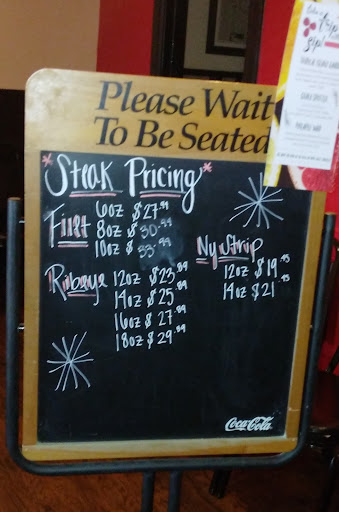 Please Wait
To Be Seated
*Steak Pricing*
Filet 6oz $27.99
8oz $30.99
10oz $33.99
Ribeye 12oz $23.99
14oz $25.99
16oz $27.99
18oz $29.99
Ny Strip
12oz $19.95
14oz $21.95
Coca-Cola